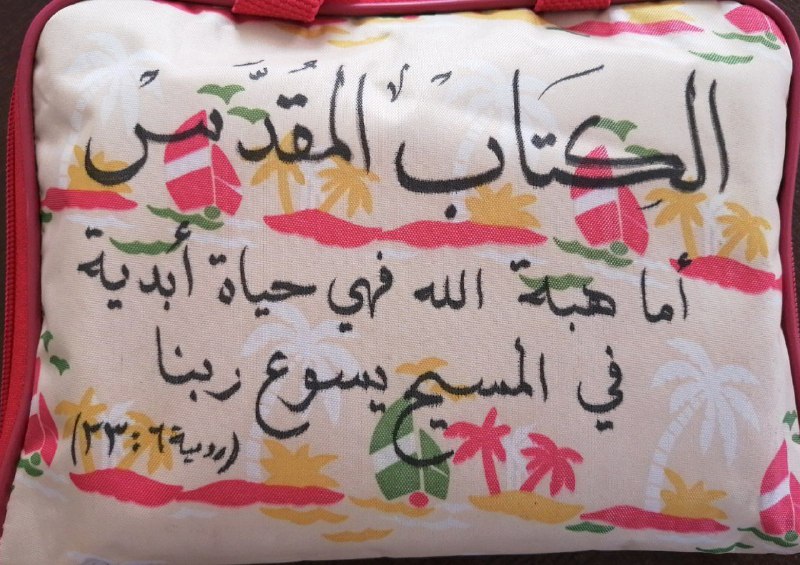 الكِتَابْ المُقدَّسْ
أما هبة الله فهي حياة أبدية
في المسيح يسوع ربنا
(رومية ٦: ٢٣)